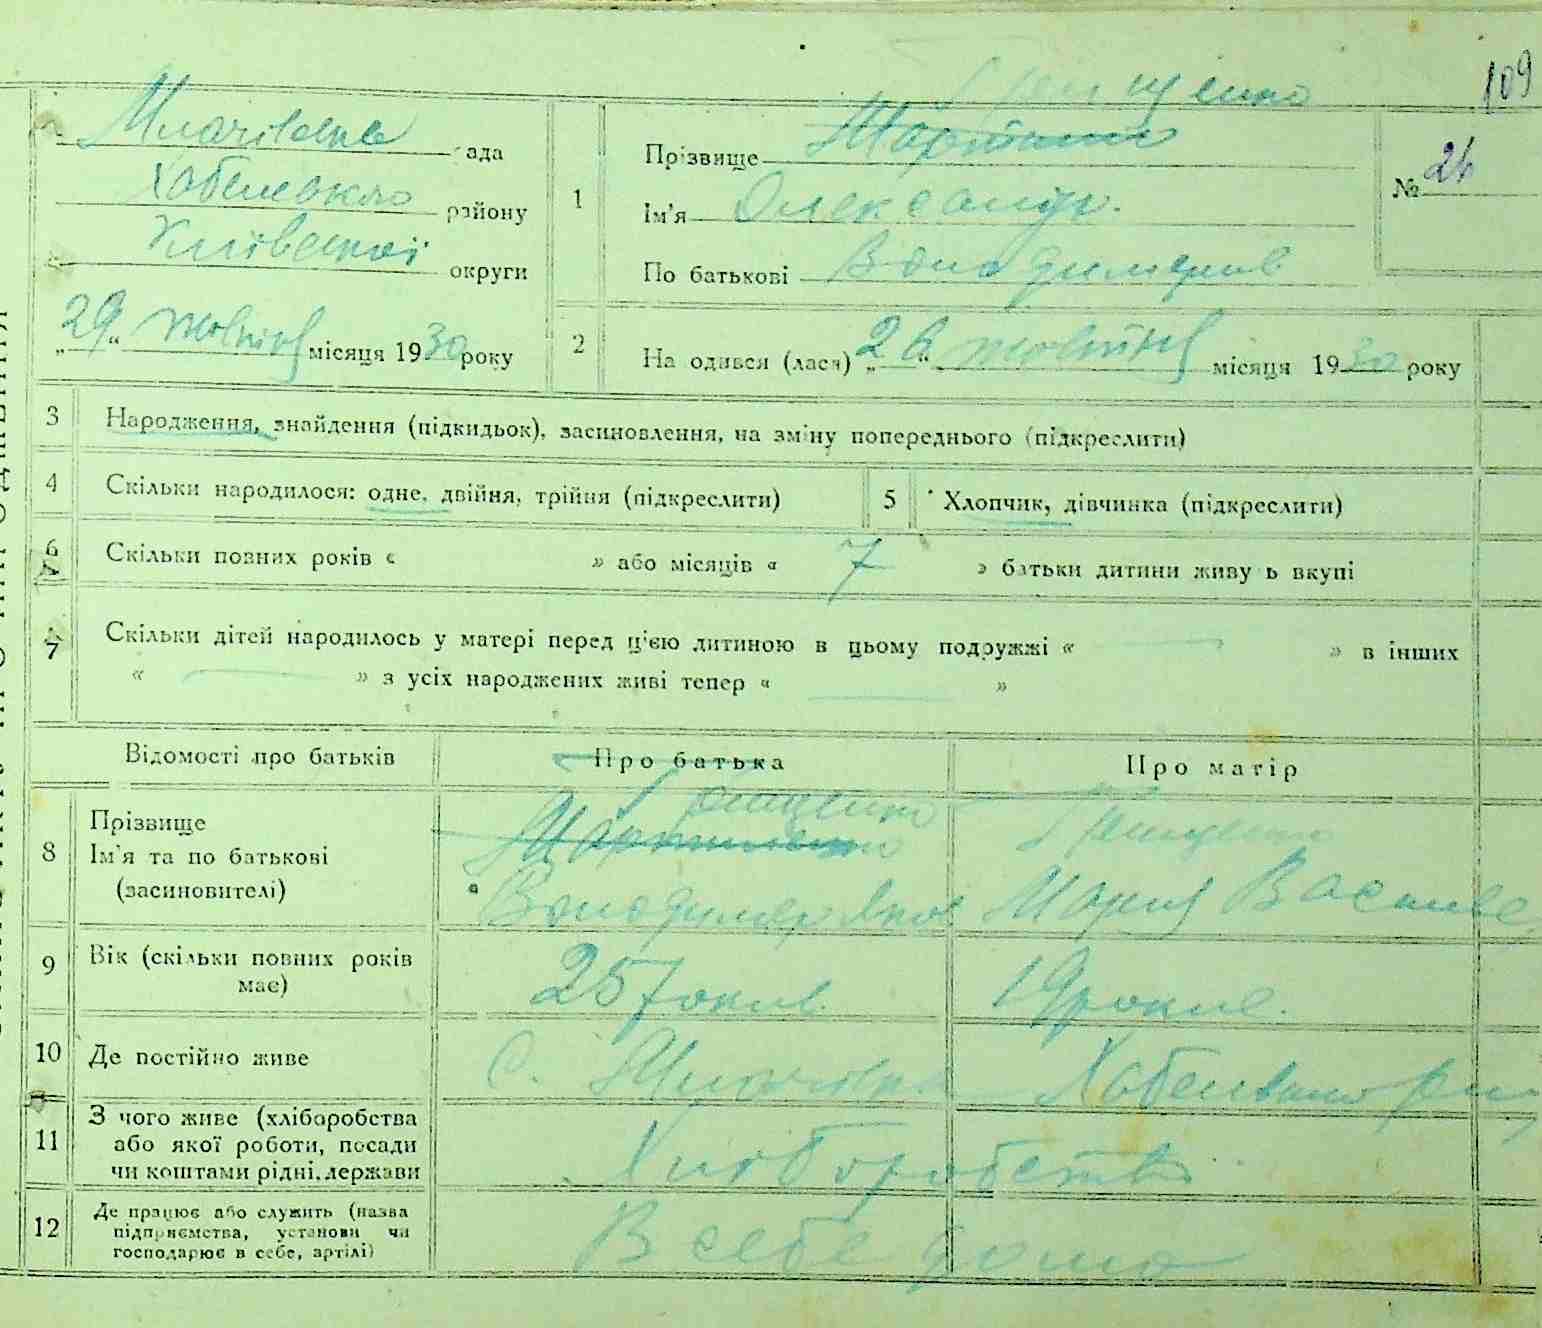 109
Грищенко
Млачівська рада
Хабенського району
Київської округи
„29“ жовтня місяця 1930 року
1
Прізвище
Ім'я Олександр.
По батькові Володимеров
№ 26
2
На одився (лася) „26“ жовтня місяця 1930 року
3 Народження, знайдення (підкидьок), засиновлення, на зміну попереднього (підкреслити)
4 Скільки народилося: одне, двійня, трійня (підкреслити)
5 Хлопчик, дівчинка (підкреслити)
6 Скільки повних років « » або місяців « 7 » батьки дитини живу ь вкупі
7 Скільки дітей народилось у матері перед ц'єю дитиною в цьому подружжі « — » в інших
« — » з усіх народжених живі тепер « — »
Відомості про батьків
Про батька
Про матір
8 Прізвище
Ім'я та по батькові
(засиновителі)
Грищенко
Володимер Яков
Грищенко
Мария Васильев
9 Вік (скільки повних років
має)
25 років.
19 років.
10 Де постійно живе
с. Млачівка
Хабенського
11 З чого живе (хліборобства
або якої роботи, посади
чи коштами рідні, держави
Хліборобство
12 Де працює або служить (назва
підприємства, установи чи
господарює в себе, артілі)
В себе дома